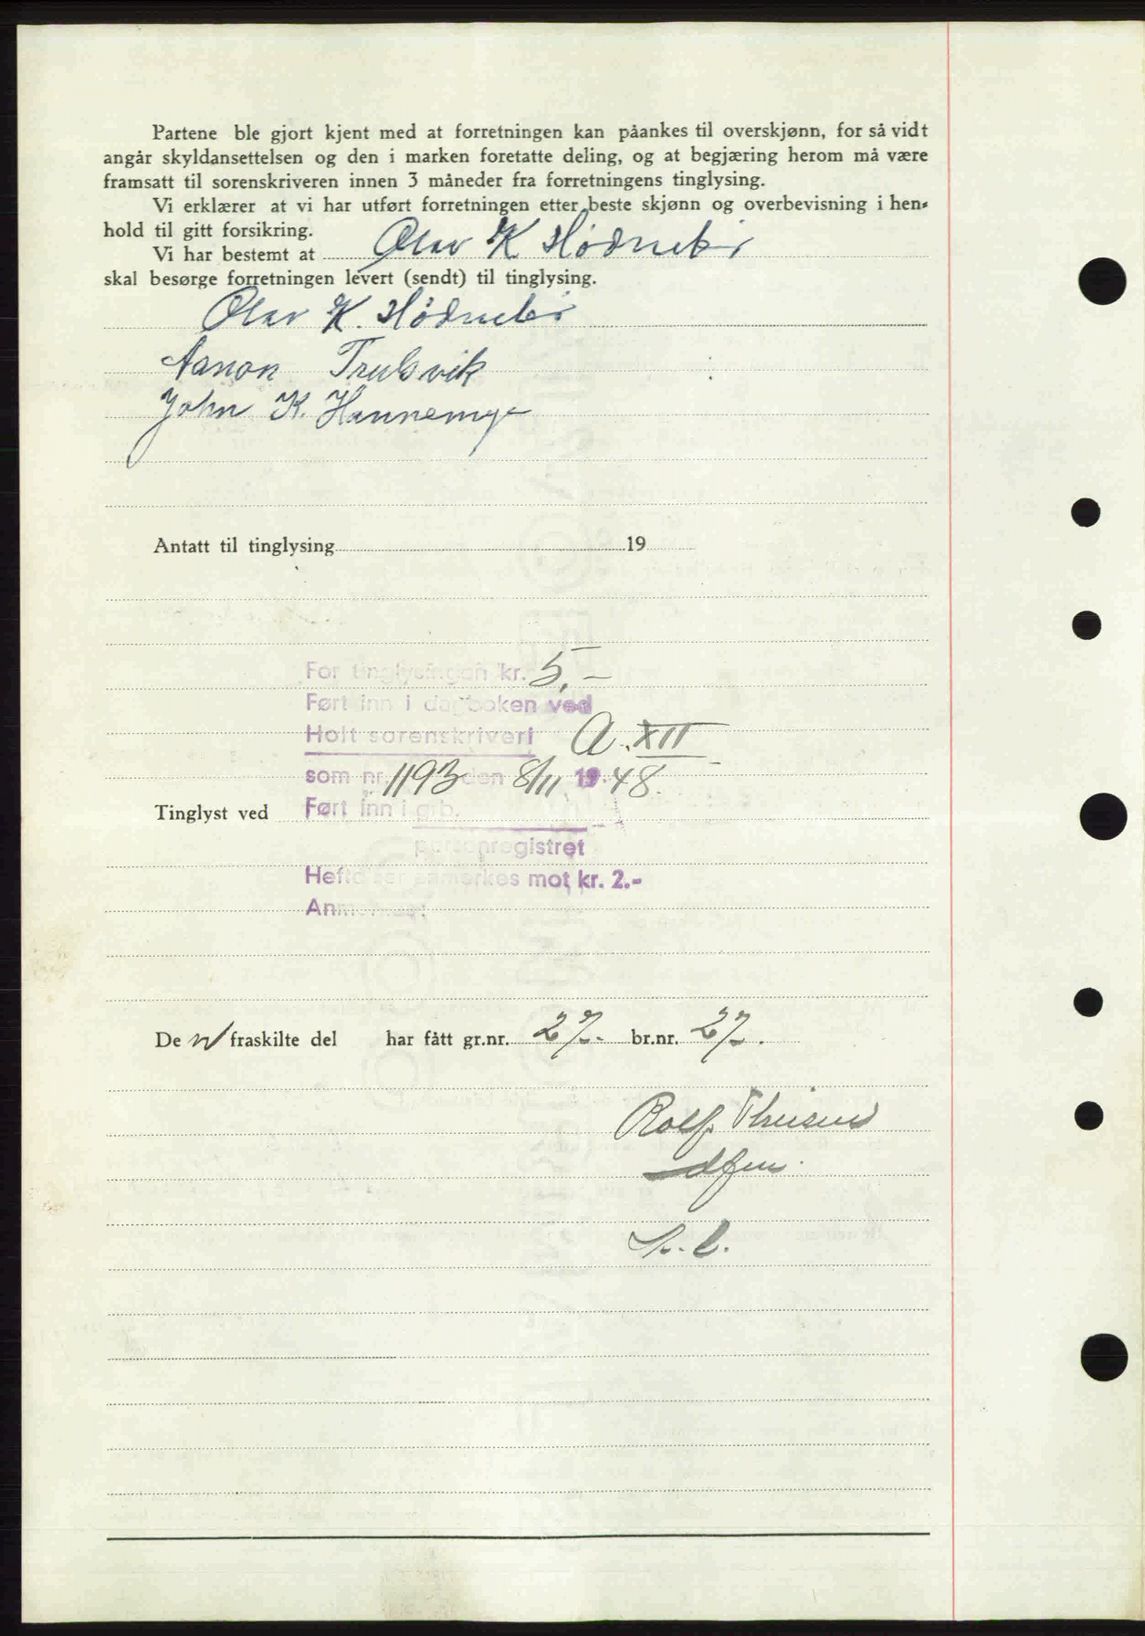 Partene ble gjort kjent med at forretningen kan påankes til overskjønn, for så vidt
angår skyldansettelsen og den i marken foretatte deling, og at begjæring herom må være
framsatt til sorenskriveren innen 3 måneder fra forretningens tinglysing.
Vi erklærer at vi har utført forretningen etter beste skjønn og overbevisning i hen-
hold til gitt forsikring.
Vi har bestemt at Olav K Hødnebø
skal besørge forretningen levert (sendt) til tinglysing.
Olav K. Hødnebø
Aanon Trubsvik
John K. Hannemyr
Antatt til tinglysing 19
For tinglysingen kr. 5,-
Ført inn i dagboken ved
Holt sorenskriveri A. XII
som nr. 1193 den 8/11 1948.
Tinglyst ved Ført inn i grb.
personregistret
Hefte mot kr. 2.-
De n fraskilte del har fått gr.nr. 27. br.nr. 27.
Rolf